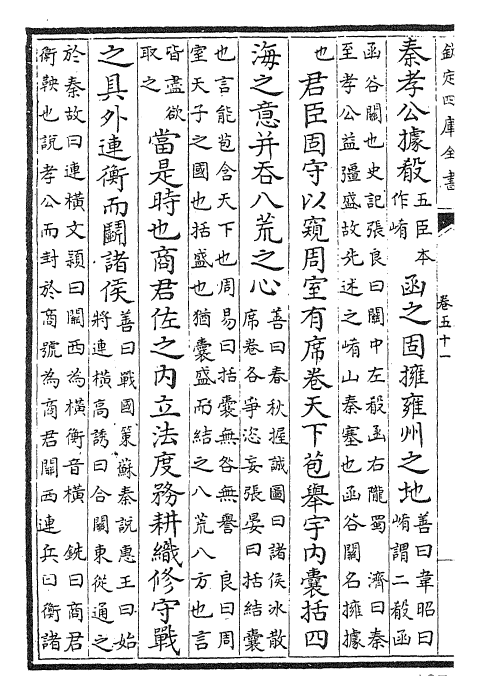 欽定四庫全書
卷五十一
秦孝公據殽五臣本作崤函之固擁雍州之地善曰韋昭曰崤謂二殽函
函谷關也史記張良曰關中左殽函右隴蜀 濟曰秦
至孝公益彊盛故先述之崤山秦塞也函谷關名擁據
也君臣固守以窺周室有席卷天下苞舉宇內囊括四
海之意并吞八荒之心善曰春秋握誠圖曰諸侯冰散席卷各爭恣妄張晏曰括結囊
也言能苞含天下也周易曰括囊無咎無譽 良曰周
室天子之國也括盛也猶囊盛而結之八荒八方也言
皆盡欲取之當是時也商君佐之內立法度務耕織修守戰
之具外連衡而鬭諸侯善曰戰國策蘇秦說惠王曰始將連橫高誘曰合關東從通之
於秦故曰連橫文穎曰關西為橫衡音橫 銑曰商君
衛鞅也說孝公而封於商號為商君關西連兵曰衡諸